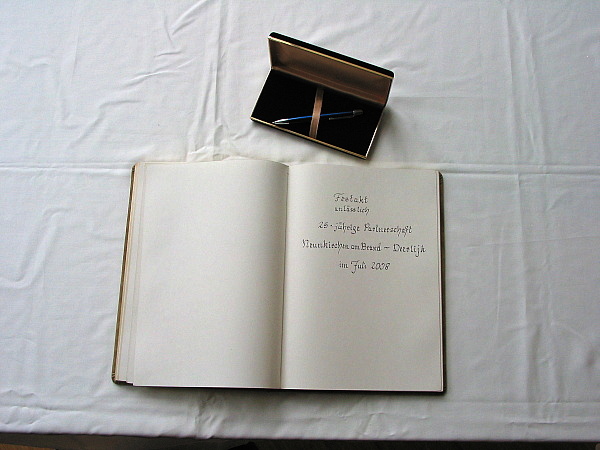 Festakt
anlässlich
25-jährige Partnerschaft
Neunkirchen am Brand - Deerlijk
im Juli 2008